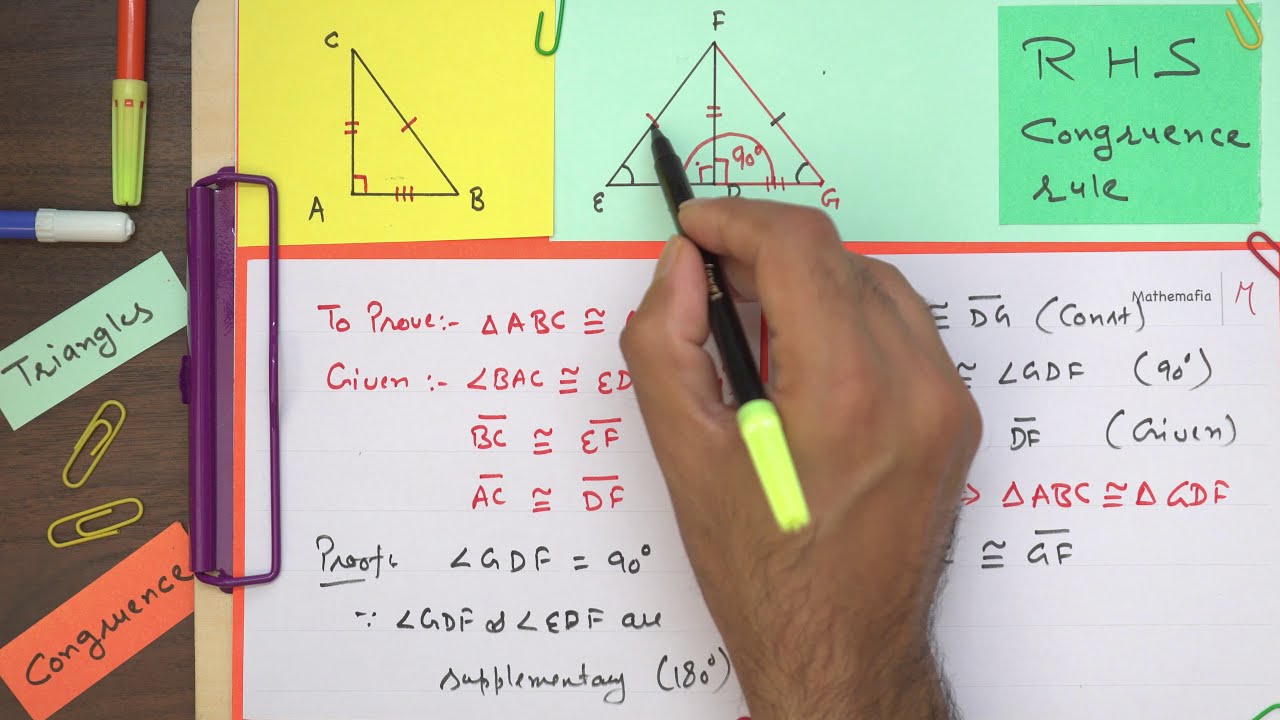 C
A
B
F
E
G
90°
R H S
Congruence
rule
Triangles
Congruence
Mathemafia M
To Prove:- △ABC ≅
Given:- ∠BAC ≅ ED
BC ≅ EF
AC ≅ DF
Proof: ∠GDF = 90°
∵ ∠GDF & ∠EDF are
supplementary (180°)
≅ DG (Const)
≅ ∠GDF (90°)
DF (Given)
⇒ △ABC ≅ △GDF
≅ GF